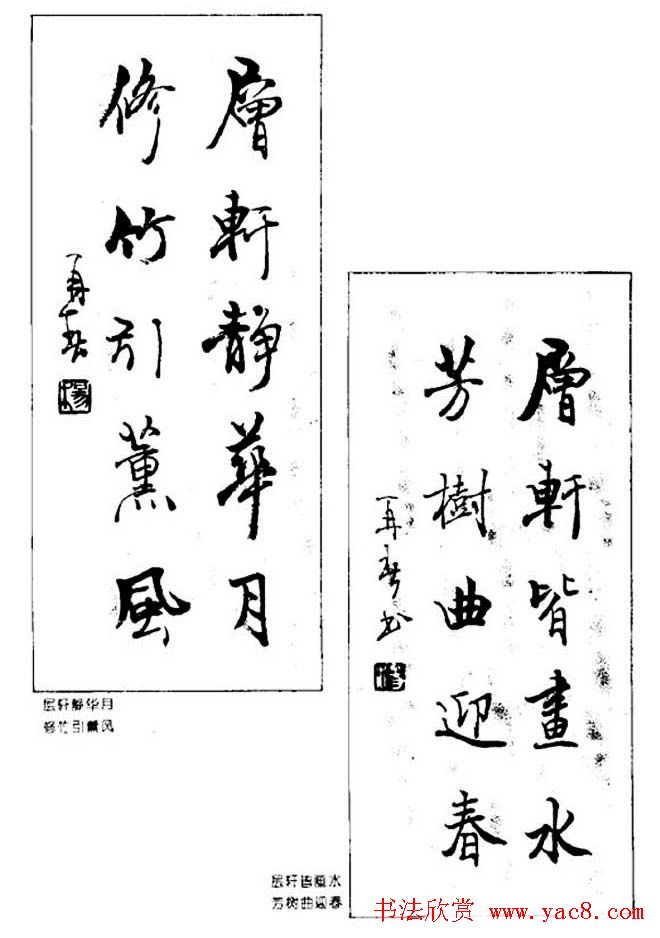 層軒静華月
修竹引薰風
再春
层轩静华月
修竹引薰风
層軒皆畫水
芳樹曲迎春
再春书
层轩皆画水
芳树曲迎春
书法欣赏 www.yac8.com